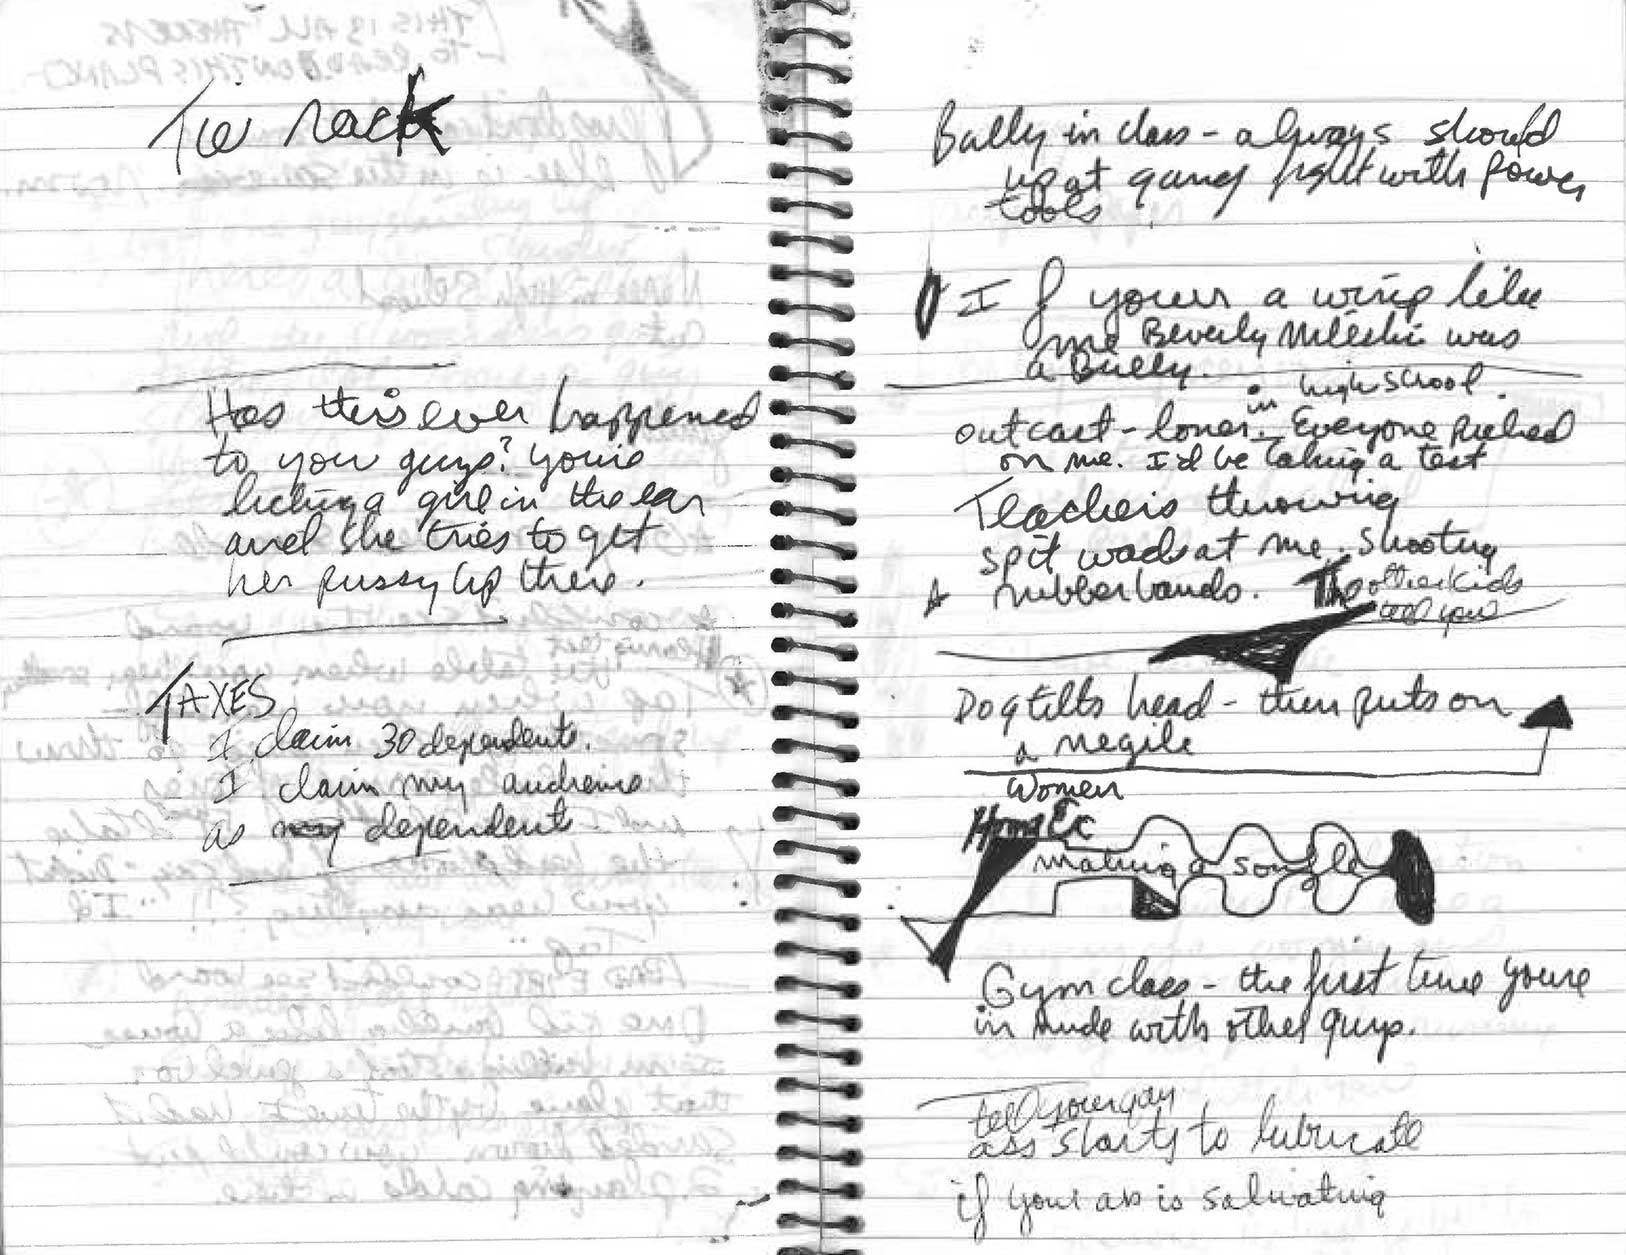 Tie rack
Has this ever happened
to you guys? you're
licking a girl in the ear
and she tries to get
her pussy up there.
TAXES
I claim 30 dependents.
I claim my audience
as my dependents
Bully in class - always should
up at gang fight with power
tools
I f your a wimp like
me Beverly was
a Bully.
in high school.
outcast - loner. Everyone picked
on me. I'd be taking a test
Teachers throwing
spit wads at me. Shooting
rubberbands. The other kids
tell your
Dog tilts head - then puts on
a negile
Women
Home Ec
making a souffle
Gym class - the first time youre
in nude with other guys.
tell your gay
ass starts to lubricate
if your ass is salivating